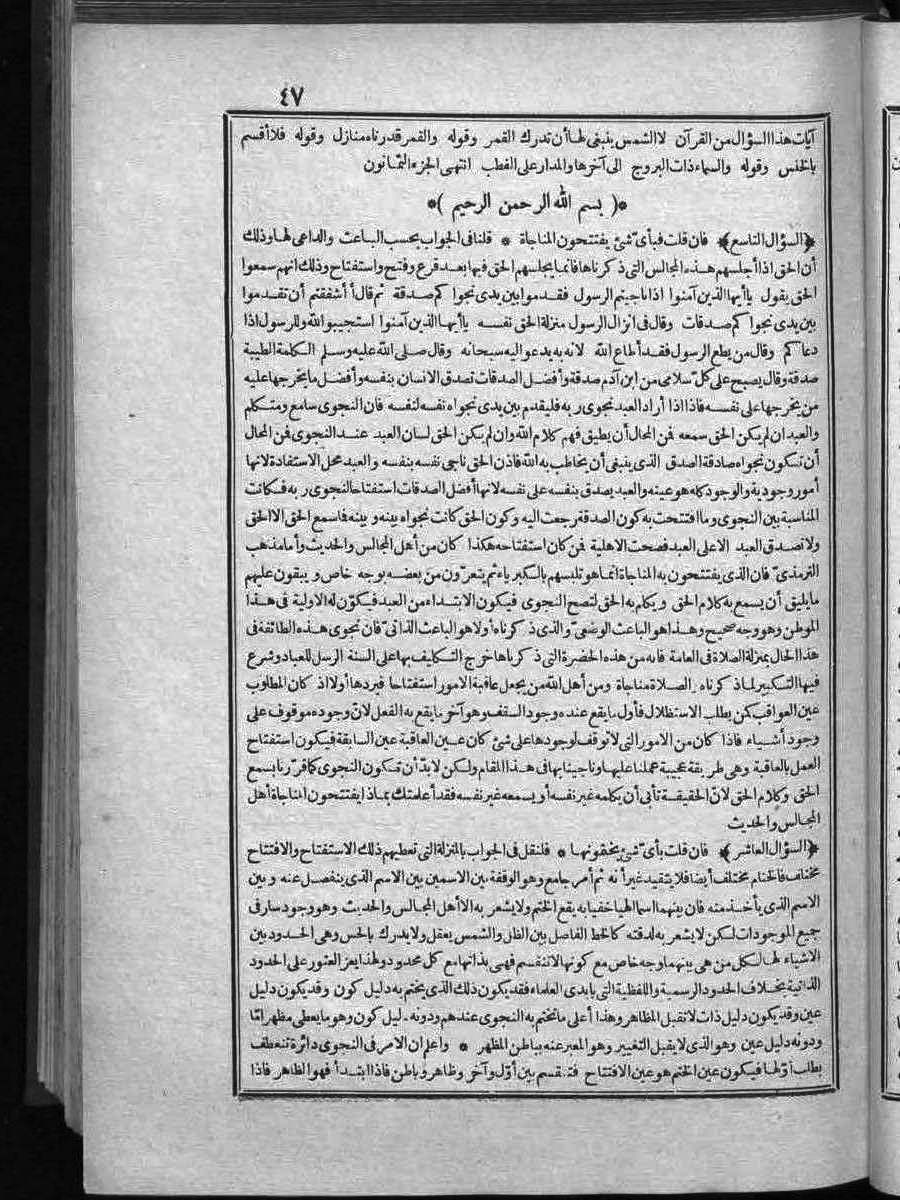 ٤٧
آيات هذا السؤال من القرآن لا الشمس ينبغي لها أن تدرك القمر وقوله والقمر قدرناه منازل وقوله فلا أقسم
بالخنس وقوله والسماء ذات البروج الى آخرها والمدار على القطب انتهى الجزء الثمانون
*( بسم الله الرحمن الرحيم )*
﴿السؤال التاسع﴾ فان قلت فبأى شئ يفتتحون المناجاة * قلنا فى الجواب بحسب الباعث والداعى لها وذلك
أن الحق اذا أجلسهم هذه المجالس التى ذكرناها فانما يجلسهم الحق فيها بعد قرع وفتح واستفتاح وذلك انهم سمعوا
الحق يقول يا أيها الذين آمنوا اذا ناجيتم الرسول فقدموا بين يدى نجواكم صدقة ثم قال أأشفقتم أن تقدموا
بين يدى نجواكم صدقات وقال فى انزال الرسول منزلة الحق نفسه يا أيها الذين آمنوا استجيبوا لله وللرسول اذا
دعاكم وقال من يطع الرسول فقد أطاع الله لانه به يدعو اليه سبحانه وقال صلى الله عليه وسلم الكلمة الطيبة
صدقة وقال يصبح على كل سلامى من ابن آدم صدقة وأفضل الصدقات تصدق الانسان بنفسه وأفضل ما يخرجها عليه
من يخرجها على نفسه فاذا اذا أراد العبد نجوى ربه فليقدم بين يدى نجواه نفسه لنفسه فان النجوى سامع ومتكلم
والعبد ان لم يكن الحق سمعه فمن المحال أن يطيق فهم كلام الله وان لم يكن الحق لسان العبد عند النجوى فمن المحال
أن تكون نجواه صادقة الصدق الذى ينبغى أن يخاطب به الله فاذن الحق ناجى نفسه بنفسه والعبد محل الاستفادة لانها
أمور وجودية والوجود كله هو عينه والعبد يصدق بنفسه على نفسه لانها أفضل الصدقات استفتاحا لنجوى ربه فكانت
المناسبة بين النجوى وما افتتحت به كون الصدقة رجعت اليه وكون الحق كانت نجواه بينه وبينه فاسمع الحق الا الحق
ولا تصدق العبد الا على العبد فصحت الاهلية فمن كان استفتاحه هكذا كان من أهل المجالس والحديث وأما مذهب
الترمذى فان الذى يفتتحون به المناجاة انما هو تلبسهم بالكبرياء ثم يتعرّون من بعضه بوجه خاص ويبقون عليهم
ما يليق أن يسمع به كلام الحق ويكلم به الحق لتصح النجوى فيكون الابتداء من العبد فيكون له الاولية فى هذا
الموطن وهو وجه صحيح وهذا هو الباعث الوضعىّ والذى ذكرناه أولا هو الباعث الذاتىّ فان نجوى هذه الطائفة فى
هذا الحال بمنزلة الصلاة فى العامة فانه من هذه الحضرة التى ذكرناها خرج التكليف بها على السنة الرسل للعباد وشرع
فيها التكبير لما ذكرناه الصلاة مناجاة ومن أهل الله من يجعل عاقبة الامور استفتاحا فيردها أولا اذ كان المطلوب
عين العواقب كمن يطلب الاستظلال فأول ما يقع عنده وجود السقف وهو آخر ما يقع به الفعل لانّ وجوده موقوف على
وجود أشياء فاذا كان من الامور التى لا توقف لوجودها على شئ كان عين العاقبة عين السابقة فيكون استفتاح
العمل بالعاقبة وهى طريقة عجيبة عملنا عليها وناجينا بها فى هذا المقام ولكن لا بدّ أن تكون النجوى كما قرّرنا بسمع
الحق وكلام الحق لانّ الحقيقة تأبى أن يكلمه غير نفسه أو يسمعه غير نفسه فقد أعلمتك بماذا يفتتحون المناجاة أهل
المجالس والحديث
﴿السؤال العاشر﴾ فان قلت بأىّ شئ يختمونها * فلنقل فى الجواب بالمنزلة التى تعطيهم ذلك الاستفتاح والافتتاح
مختلف فالختام مختلف أيضا فلا يتقيد غير أنه ثم أمر جامع وهو الوقفة بين الاسمين بين الاسم الذى ينفصل عنه وبين
الاسم الذى يأخذ منه فان بينهما اسما الهيا خفيا به يقع الختم ولا يشعر به الا أهل المجالس والحديث وهو وجود سار فى
جميع الموجودات لكن لا يشعر به لدقته كالخط الفاصل بين الظل والشمس يعقل ولا يدرك بالحس وهى الحدود بين
الاشياء لها لكل من هى بينهما وجه خاص مع كونها لا تنقسم فهى بذاتها مع كل محدود ولهذا يعز العثور على الحدود
الذاتية بخلاف الحدود الرسمية واللفظية التى بايدى العلماء فقد يكون ذلك الذى يختم به دليل كون وقد يكون دليل
عين وقد يكون دليل ذات لا تقبل المظاهر وهذا أعلى ما تختم به النجوى عندهم ودونه دليل كون وهو ما يعطى مظهرا مّا
ودونه دليل عين وهو الذى لا يقبل التغيير وهو المعبر عنه بباطن المظهر * واعلم ان الامر فى النجوى دائرة تنعطف
بطلب أوّلها فيكون عين الختم هو عين الافتتاح فتنقسم بين أوّل وآخر وظاهر وباطن فاذا ابتدأ فهو الظاهر فاذا